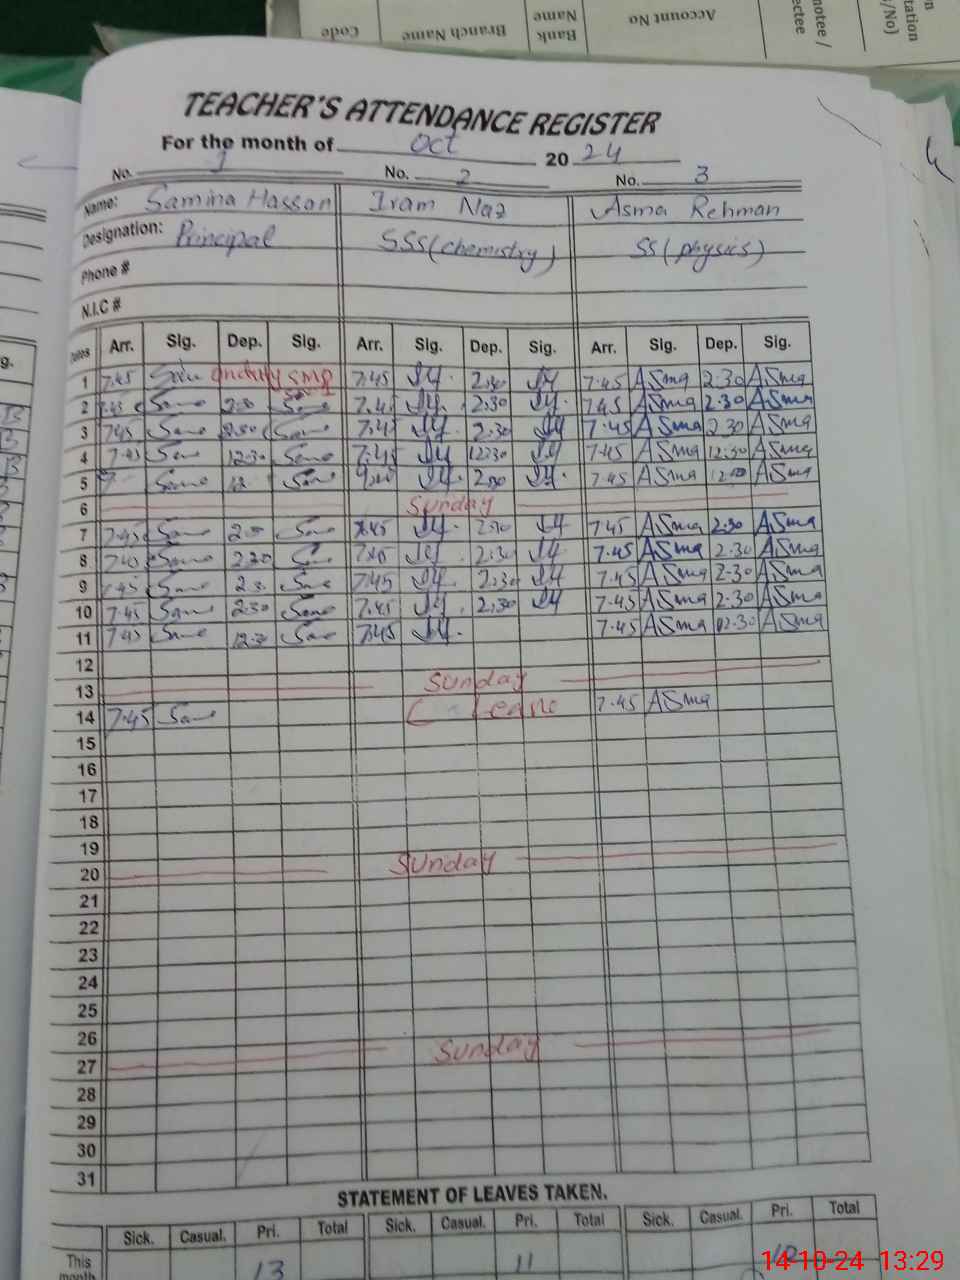 Account No
Branch Name
Bank Name
Code
TEACHER'S ATTENDANCE REGISTER
For the month of Oct 2024
No. 1 No. 2 No. 3
Name: Samina Hassan Iram Naz Asma Rehman
Designation: Principal SSS (chemistry) SS (physics)
Phone #
N.I.C #
Dates Arr. Sig. Dep. Sig. Arr. Sig. Dep. Sig. Arr. Sig. Dep. Sig.
1 7.45 7.45 2.30 7.45 ASma 2.30 ASma
2 7.45 2.30 7.45 2.30 7.45 ASma 2.30 ASma
3 7.45 2.30 7.45 2.30 7.45 ASma 2.30 ASma
4 7.45 12.30 7.45 12.30 7.45 ASma 12.30 ASma
5 7.45 ASma ASma
6 Sunday
7 7.45 7.45 2.30 7.45 ASma 2.30 ASma
8 7.45 2.30 7.45 2.30 7.45 ASma 2.30 ASma
9 7.45 2.30 7.45 2.30 7.45 ASma 2.30 ASma
10 7.45 2.30 7.45 2.30 7.45 ASma 2.30 ASma
11 7.45 12.30 7.45 7.45 ASma 12.30 ASma
12
13 Sunday
14 7.45 Leave 7.45 ASma
15
16
17
18
19
20 Sunday
21
22
23
24
25
26
27 Sunday
28
29
30
31
STATEMENT OF LEAVES TAKEN.
Sick. Casual. Pri. Total Sick. Casual. Pri. Total Sick. Casual. Pri. Total
This month 13 11
14-10-24 13:29